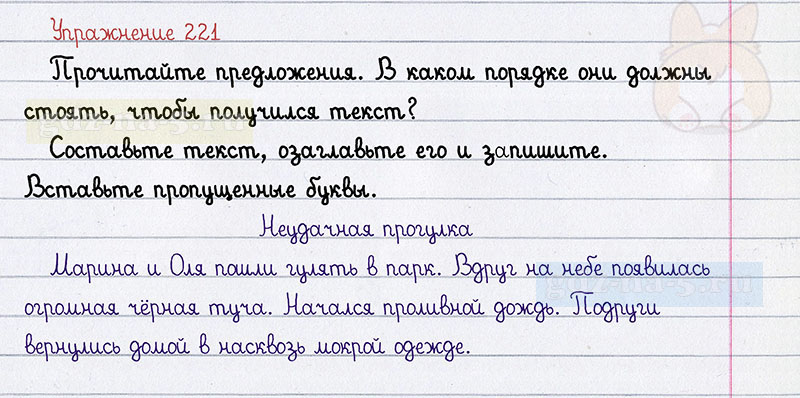 Упражнение 221
Прочитайте предложения. В каком порядке они должны
стоять, чтобы получился текст?
Составьте текст, озаглавьте его и запишите.
Вставьте пропущенные буквы.
Неудачная прогулка
Марина и Оля пошли гулять в парк. Вдруг на небе появилась
огромная чёрная туча. Начался проливной дождь. Подруги
вернулись домой в насквозь мокрой одежде.